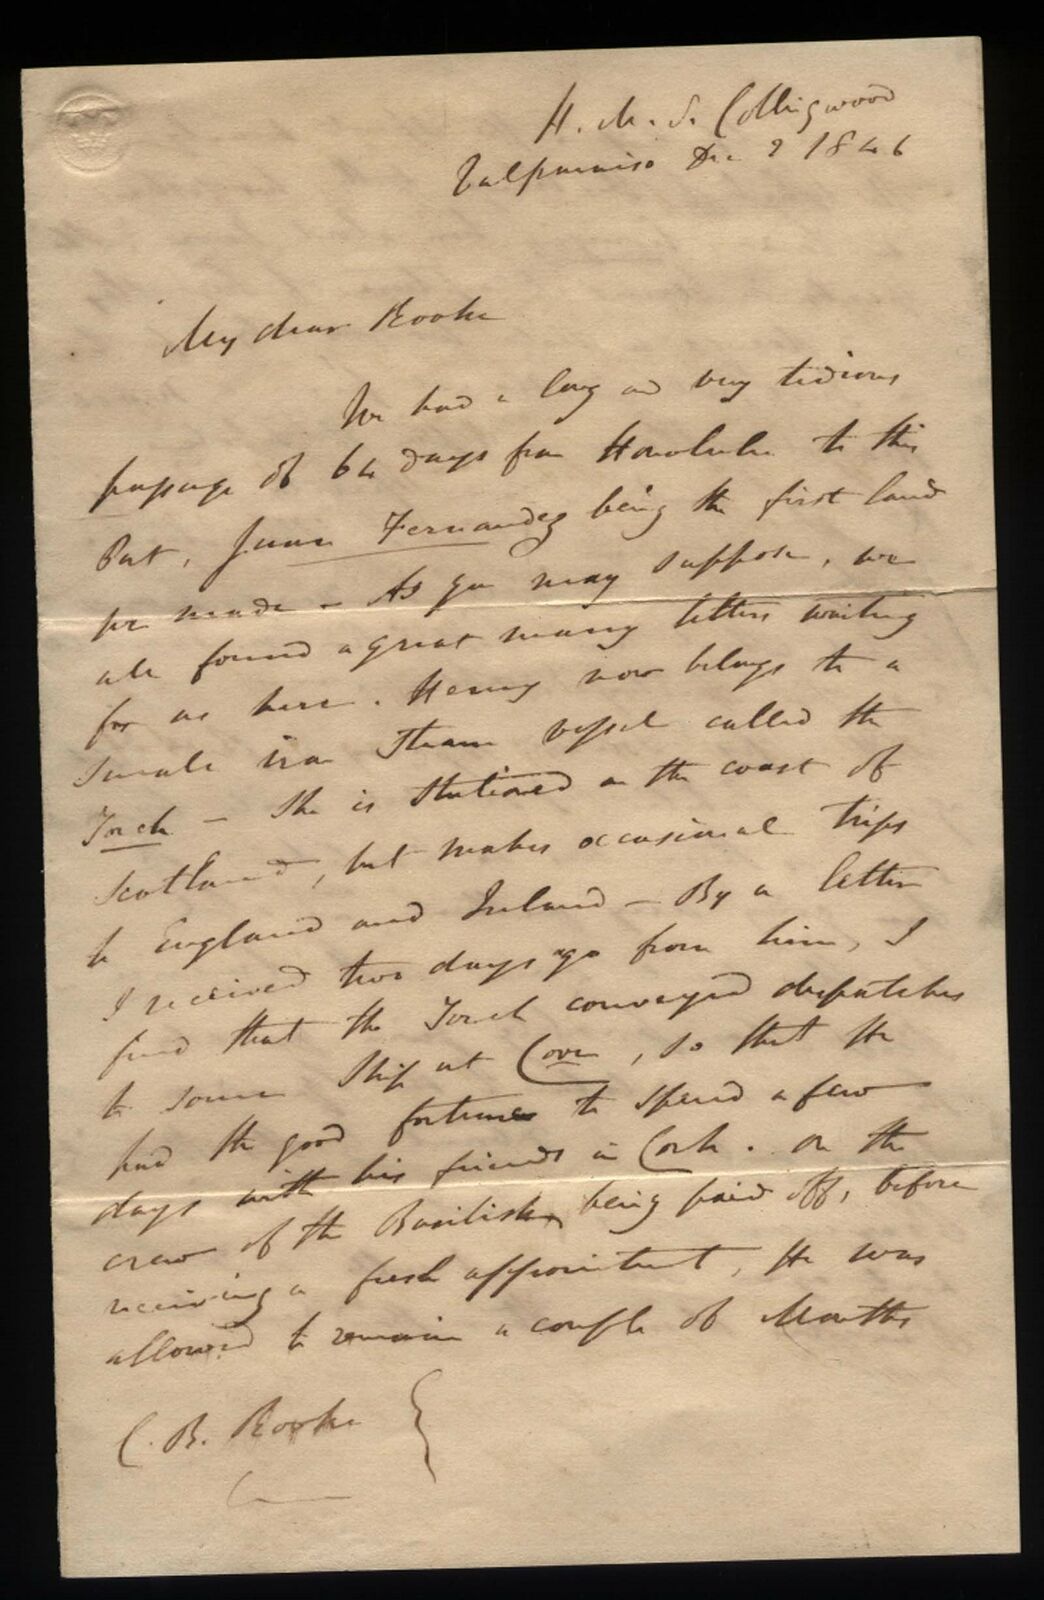 H. M. S. Collingwood
Valparaiso Dec 2 1846
My dear Rooke
We had a long and very tedious
passage of 64 days from Honolulu to this
Port, Juan Fernandez being the first land
we made - As you may suppose, we
all found a great many letters waiting
for us here. Henry now belongs to a
small iron Steam vessel called the
Torch - She is Stationed on the coast of
Scotland, but makes occasional trips
to England and Ireland - By a letter
I received two days ago from him, I
find that the Torch conveyed dispatches
to some Ship at Cove, so that He
had the good fortune to spend a few
days with his friends in Cork. On the
crew of the Basilisk being paid off, before
receiving a fresh appointment, He was
allowed to remain a couple of Months
C. B. Rooke